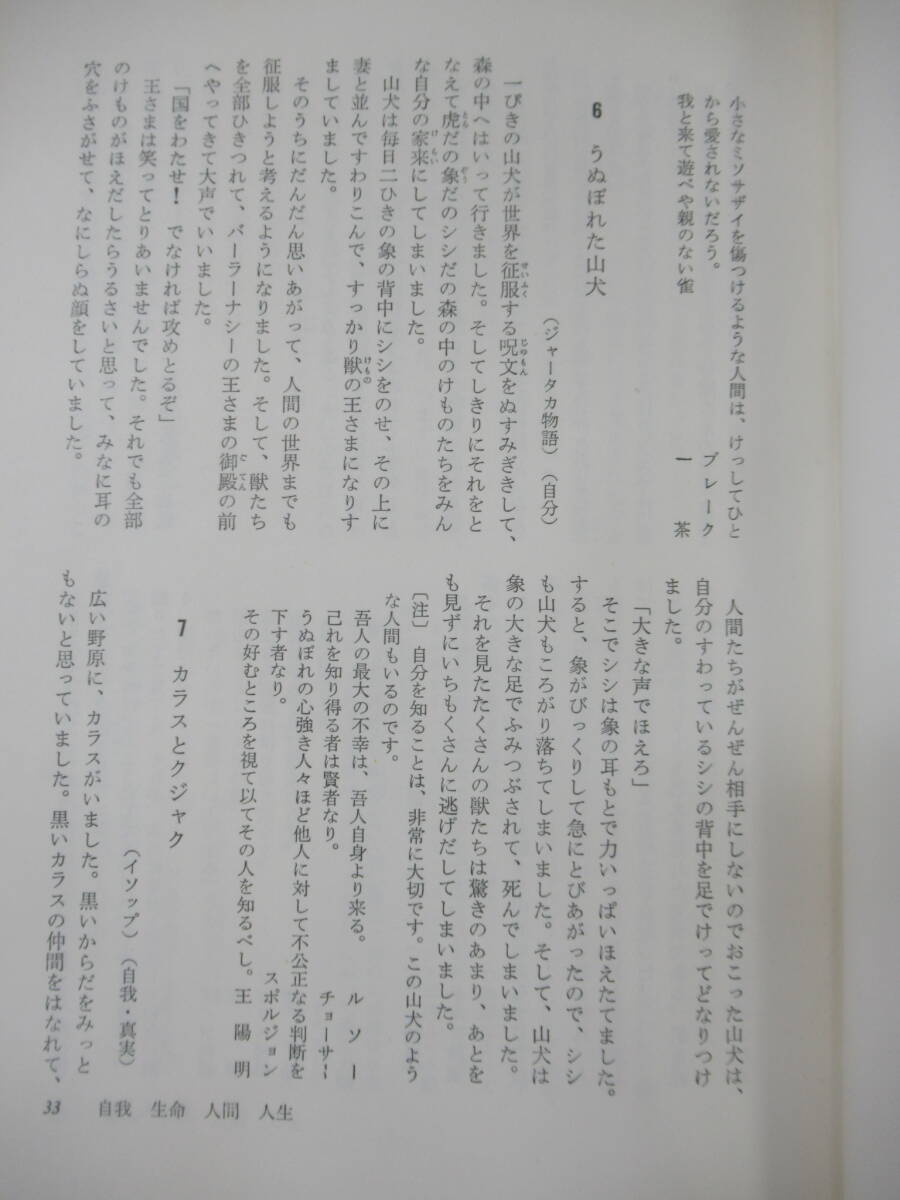 小さなミソサザイを傷つけるような人間は、けっしてひと
から愛されないだろう。
ブレーク
我と来て遊べや親のない雀
一茶
6 うぬぼれた山犬
（ジャータカ物語）（自分）
一ぴきの山犬が世界を征服する呪文をぬすみぎきして、
森の中へはいって行きました。そしてしきりにそれをと
なえて虎だの象だのシシだの森の中のけものたちをみん
な自分の家来にしてしまいました。
山犬は毎日二ひきの象の背中にシシをのせ、その上に
妻と並んですわりこんで、すっかり獣の王さまになりす
ましていました。
そのうちにだんだん思いあがって、人間の世界までも
征服しようと考えるようになりました。そして、獣たち
を全部ひきつれて、バーラーナシーの王さまの御殿の前
へやってきて大声でいいました。
「国をわたせ！ でなければ攻めとるぞ」
王さまは笑ってとりあいませんでした。それでも全部
のけものがほえだしたらうるさいと思って、みなに耳の
穴をふさがせて、なにしらぬ顔をしていました。
人間たちがぜんぜん相手にしないのでおこった山犬は、
自分のすわっているシシの背中を足でけってどなりつけ
ました。
「大きな声でほえろ」
そこでシシは象の耳もとで力いっぱいほえたてました。
すると、象がびっくりして急にとびあがったので、シシ
も山犬もころがり落ちてしまいました。そして、山犬は
象の大きな足でふみつぶされて、死んでしまいました。
それを見たたくさんの獣たちは驚きのあまり、あとを
も見ずにいちもくさんに逃げだしてしまいました。
〔注〕 自分を知ることは、非常に大切です。この山犬のよう
な人間もいるのです。
吾人の最大の不幸は、吾人自身より来る。 ルソー
己れを知り得る者は賢者なり。 チョーサー
うぬぼれの心強き人々ほど他人に対して不公正なる判断を
下す者なり。 スポルジョン
その好むところを視て以てその人を知るべし。 王陽明
7 カラスとクジャク
（イソップ）（自我・真実）
広い野原に、カラスがいました。黒いからだをみっと
もないと思っていました。黒いカラスの仲間をはなれて、
33 自我 生命 人間 人生